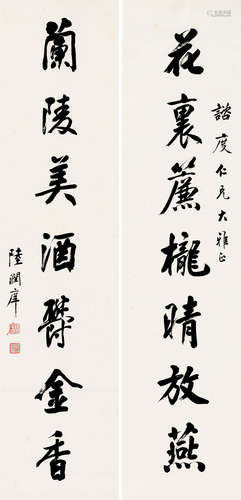 花裏簾櫳晴放燕
諮度仁兄大雅正
蘭陵美酒鬱金香
陸潤庠